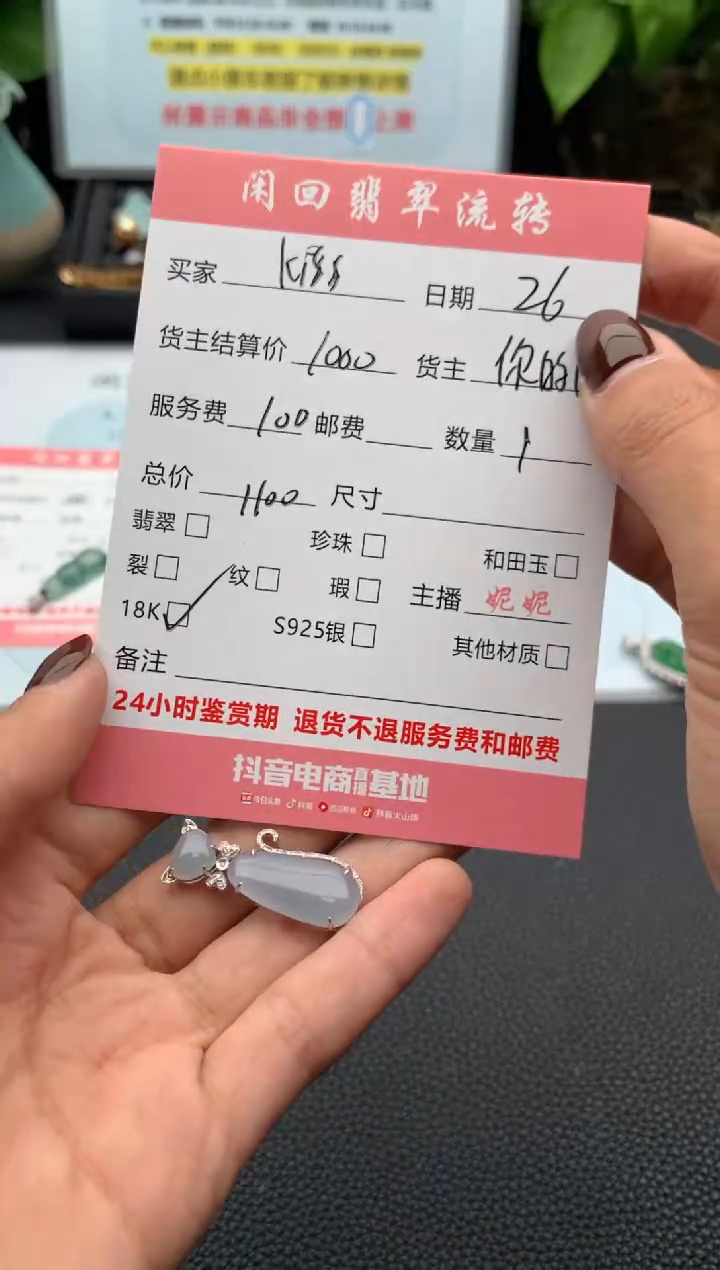 闲回翡翠流转
买家 kiss 日期 26
货主结算价 1000 货主 你的
服务费 100 邮费 数量 1
总价 1100 尺寸
翡翠 珍珠 和田玉
裂 纹 瑕 主播 妮妮
18K S925银 其他材质
备注
24小时鉴赏期 退货不退服务费和邮费
抖音电商直播基地
今日头条 抖音 西瓜视频 抖音火山版